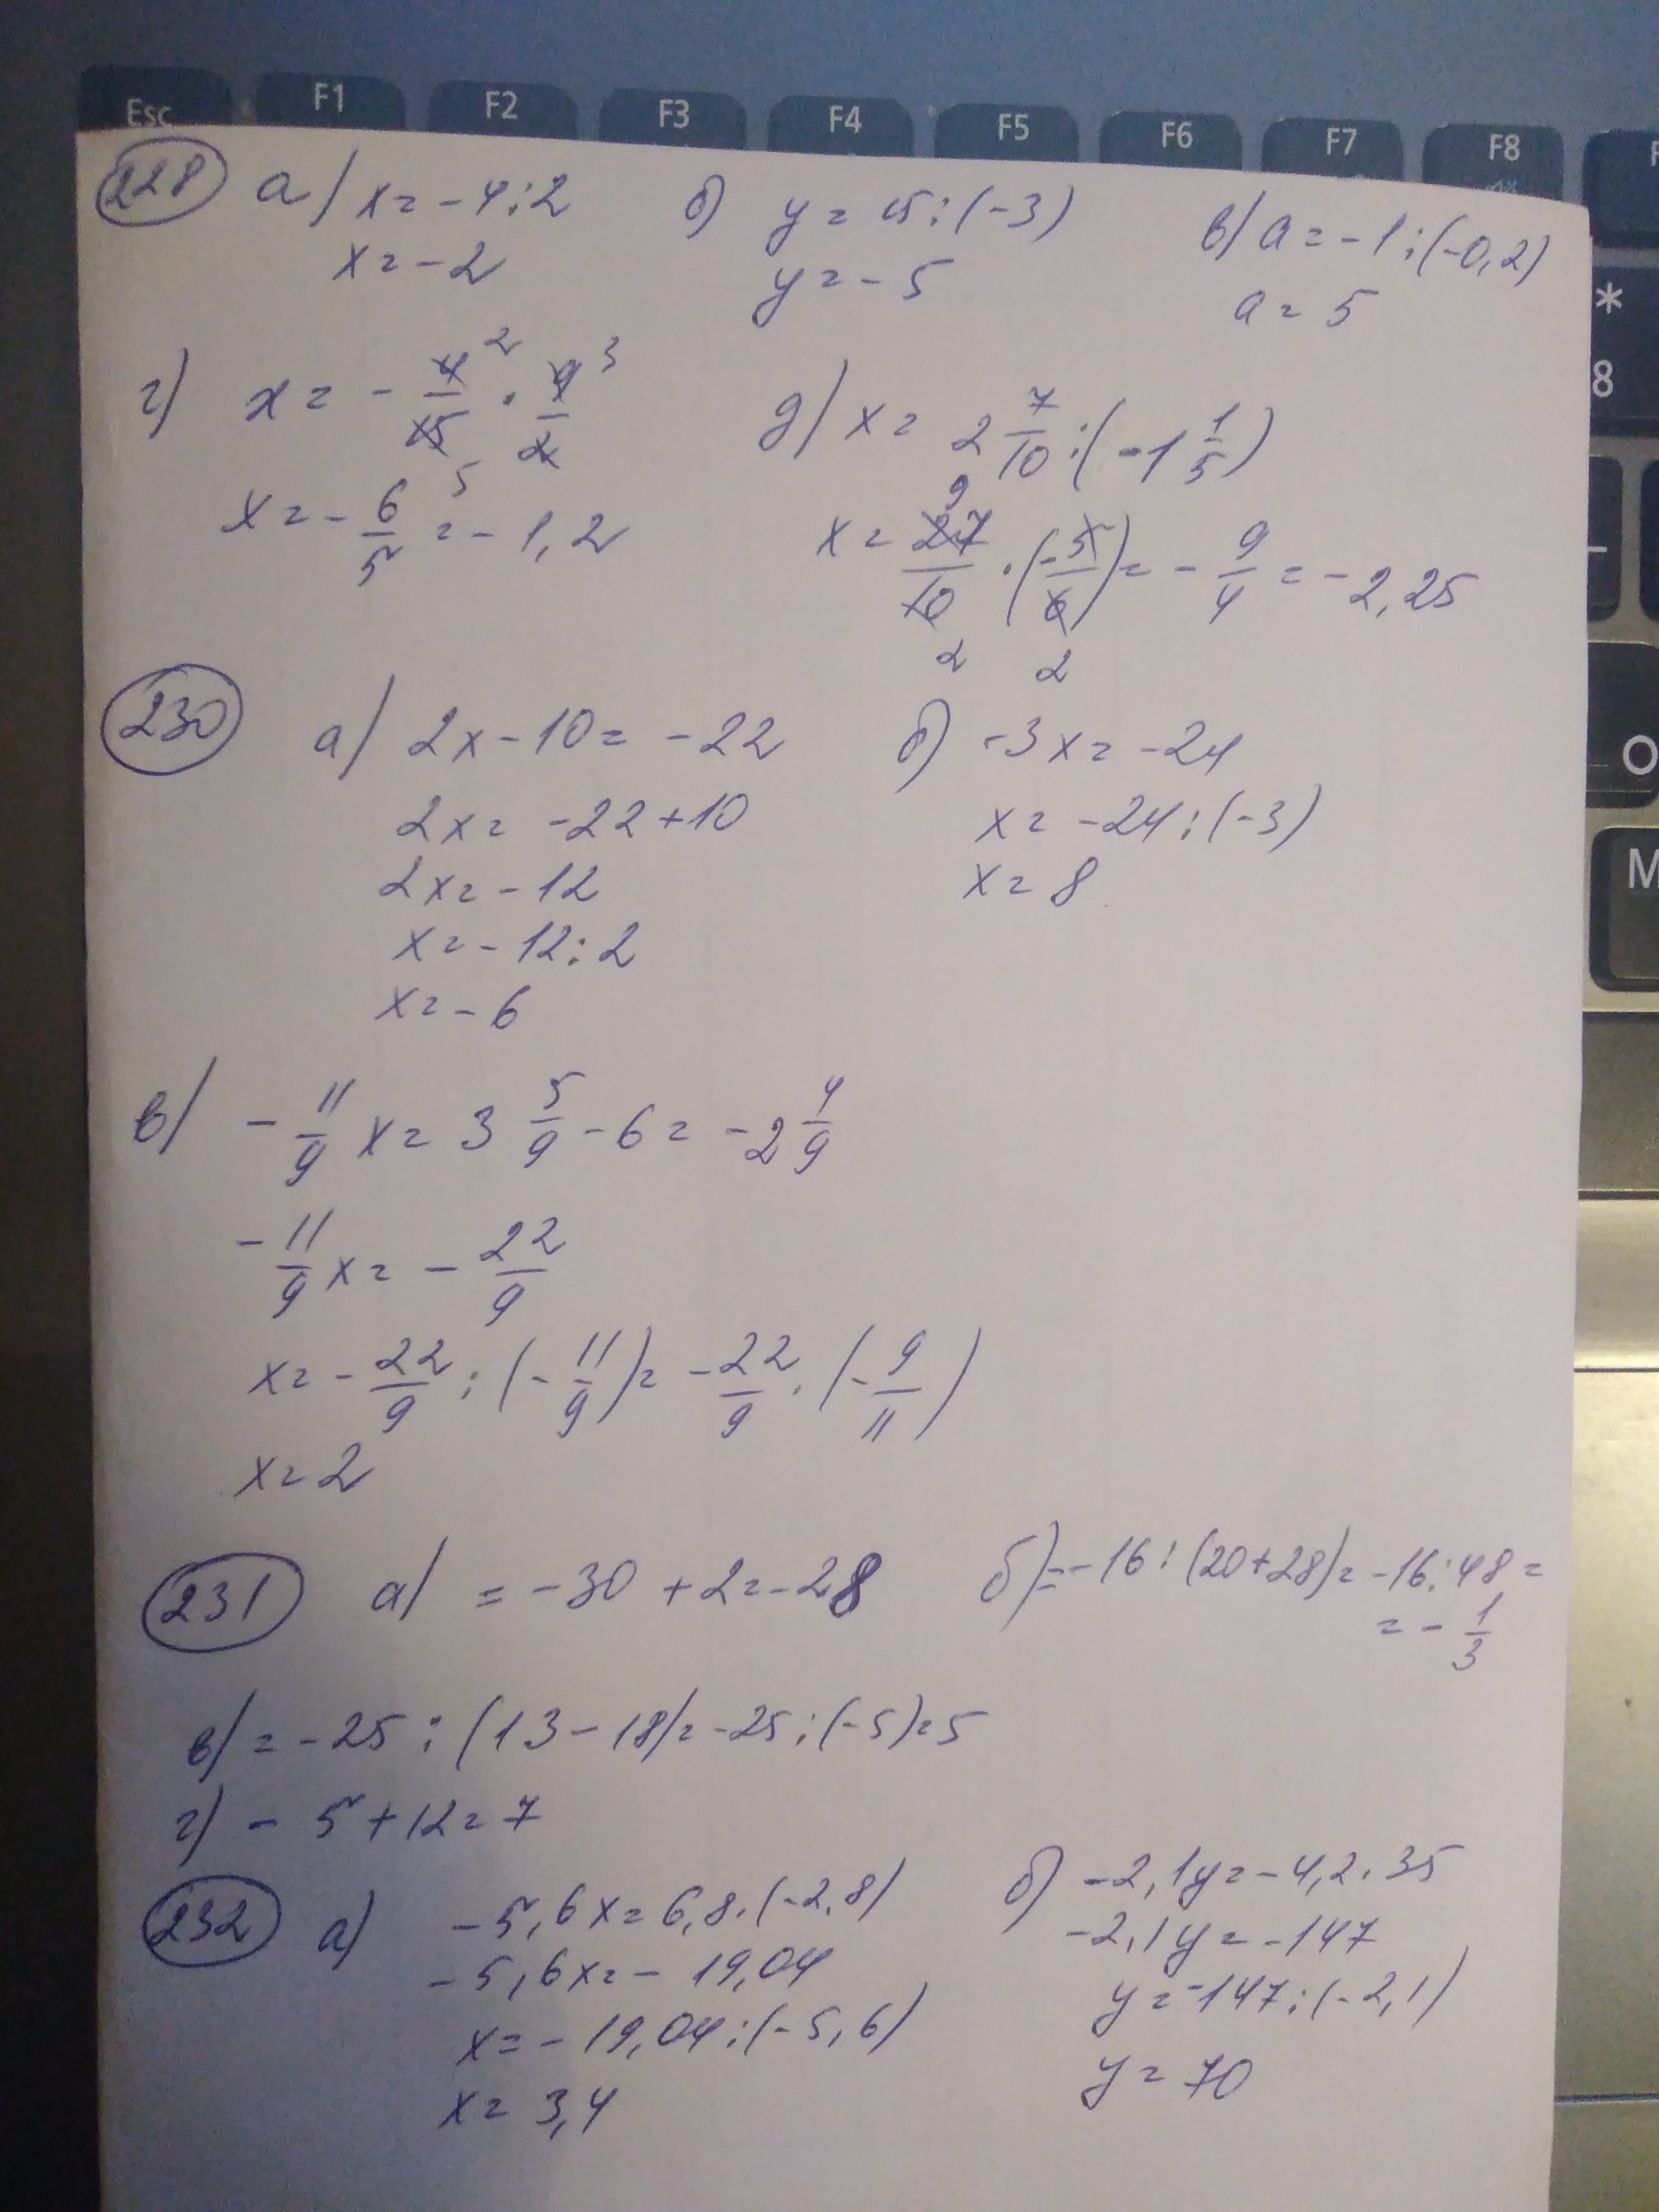 Esc F1 F2 F3 F4 F5 F6 F7 F8
228 а) x = -4 : 2 б) y = 15 : (-3) в) a = -1 : (-0,2)
x = -2 y = -5 a = 5
*
8
г) x = - 4/15 · 9/2 2 3 5 д) x = 2 7/10 : (-1 1/5)
x = - 6/5 = -1,2 x = 27/10 · (-5/6) = - 9/4 = -2,25 9 2 2
230 а) 2x - 10 = -22 б) -3x = -24
2x = -22 + 10 x = -24 : (-3)
2x = -12 x = 8
x = -12 : 2
x = -6
O
M
в) - 11/9 x = 3 5/9 - 6 = -2 4/9
- 11/9 x = - 22/9
x = - 22/9 : (- 11/9) = - 22/9 · (- 9/11)
x = 2
231 а) = -30 + 2 = -28 б) = -16 : (20 + 28) = -16 : 48 =
= - 1/3
в) = -25 : (13 - 18) = -25 : (-5) = 5
г) - 5 + 12 = 7
232 а) -5,6x = 6,8 · (-2,8) б) -2,1y = -4,2 · 35
-5,6x = -19,04 -2,1y = -147
x = -19,04 : (-5,6) y = -147 : (-2,1)
x = 3,4 y = 70